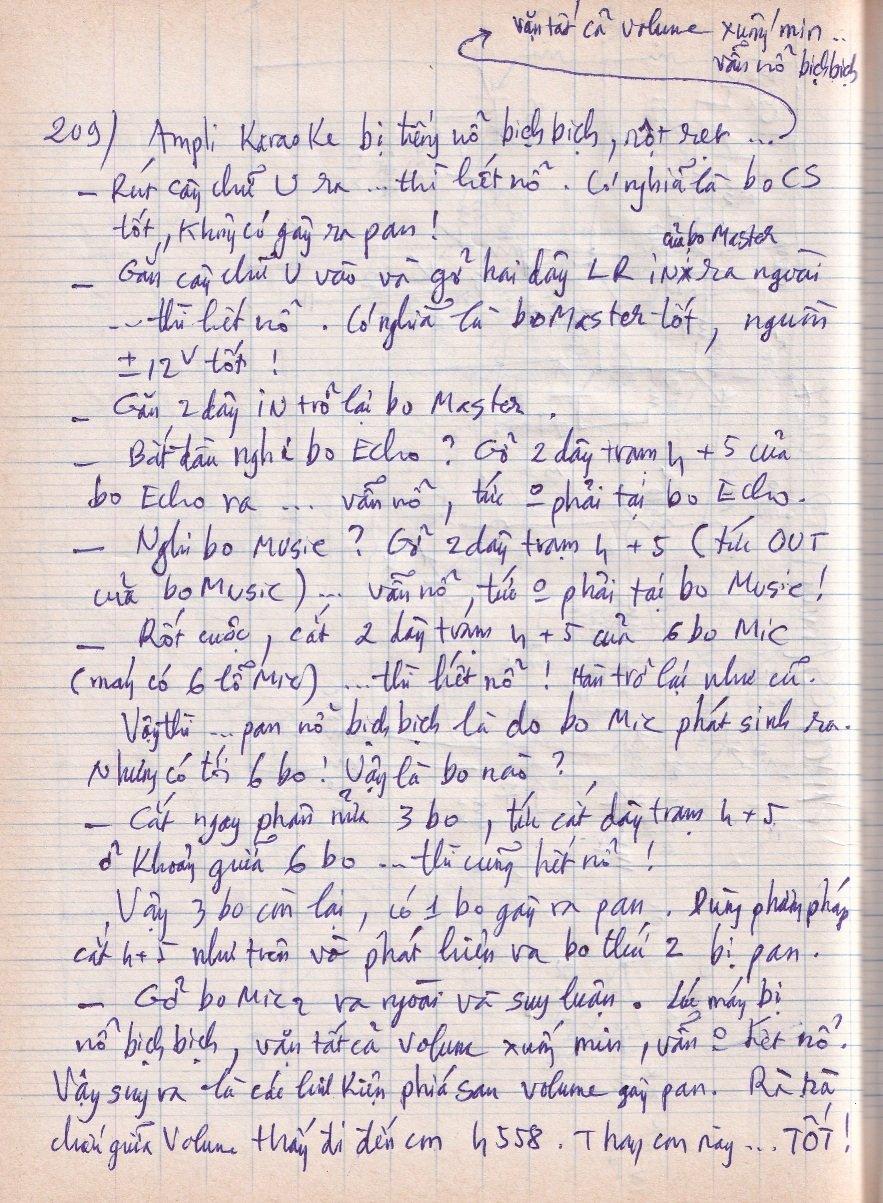 vặn tất cả volume xuống min..
vẫn nổ bịch bịch
209) Ampli KaraoKe bị tiếng nổ bịch bịch, rột rẹt ...
- Rút cây chữ U ra ... thì hết nổ. Có nghĩa là bo CS
tốt, Không có gây ra pan!
của bo Master
- Gắn cây chữ U vào và gở hai dây LR iN x ra ngoài
... thì hết nổ. Có nghĩa là bo Master tốt, nguồn
± 12V tốt!
- Gắn 2 dây iN trở lại bo Master.
- Bắt đầu nghi bo Echo? Gở 2 dây trạm 4 + 5 của
bo Echo ra ... vẫn nổ, tức o phải tại bo Echo.
- Nghi bo Music? Gở 2 dây trạm 4 + 5 (tức OUT
của bo Music) ... vẫn nổ, tức o phải tại bo Music!
- Rốt cuộc, cắt 2 dây trạm 4 + 5 của 6 bo Mic
(máy có 6 lổ Mic) ... thì hết nổ! Hàn trở lại như cũ.
Vậy thì ... pan nổ bịch bịch là do bo Mic phát sinh ra.
Nhưng có tới 6 bo! Vậy là bo nào?
- Cắt ngay phân nửa 3 bo, tức cắt dây trạm 4 + 5
ở Khoảng giữa 6 bo ... thì cũng hết nổ!
Vậy 3 bo còn lại, có 1 bo gây ra pan. Dùng phương pháp
cắt 4 + 5 như trên và phát hiện ra bo thứ 2 bị pan.
- Gở bo Mic 2 ra ngoài và suy luận. Lúc máy bị
nổ bịch bịch, vặn tất cả volume xuống min, vẫn o hết nổ.
Vậy suy ra là các linh Kiện phía sau volume gây pan. Rà rà
chân giữa Volume thấy đi đến con 4558. Thay con này ... TỐT!